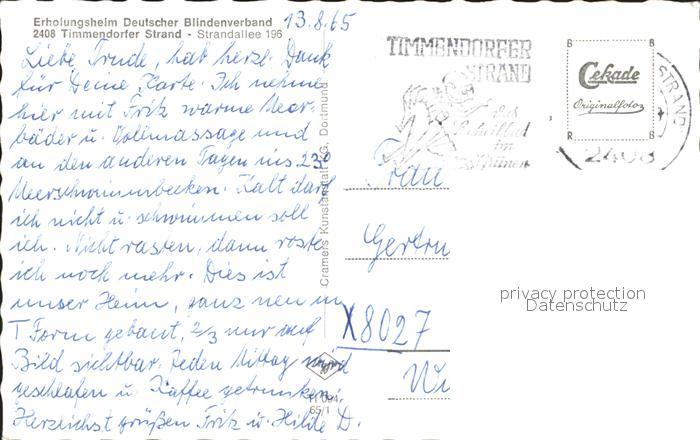 Erholungsheim Deutscher Blindenverband
2408 Timmendorfer Strand - Strandallee 196
13.8.65
Liebe Trude, hab herzl. Dank
für Deine Karte. Ich nehme
hier mit Fritz warme Meer-
bäder u. Vollmassage und
an den anderen Tagen ins 23°
Meerschwimmbecken. Kalt darf
ich nicht u. schwimmen soll
ich. Nicht rasten, dann roste
ich noch mehr. Dies ist
unser Heim, ganz neu in
T Form gebaut, 2/3 nur auf
Bild sichtbar. Jeden Mittag wird
geschlafen u. Kaffee getrunken.
Herzlichst grüßen Fritz u. Hilde D.
Cramers Kunstanstalt KG, Dortmund
65/1
TIMMENDORFER
STRAND
Das
Seebad
im
Grünen
STRAND
2408
B B
Cekade
Originalfotos
R R
Frau
Gertru
X8027
Wi
privacy protection
Datenschutz